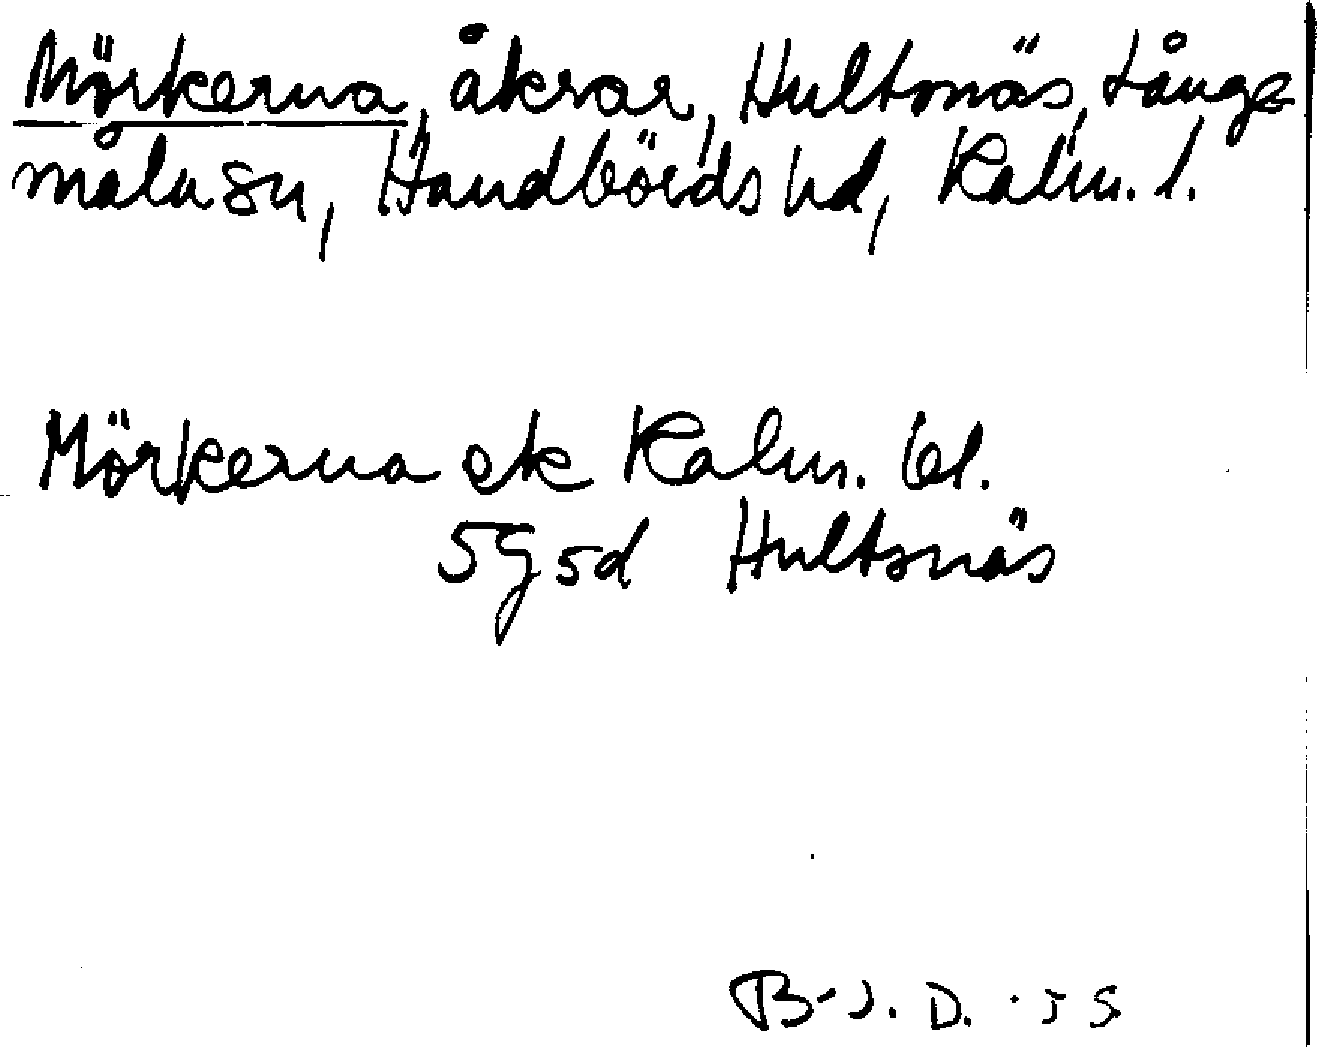 Mörkerna, åkrar, Hultsnäs, Långa-
måla sn, Handbörds hd, Kalm. l.
Mörkerna ek Kalm. bl.
5G5d Hultsnäs
B-J. D. · 55